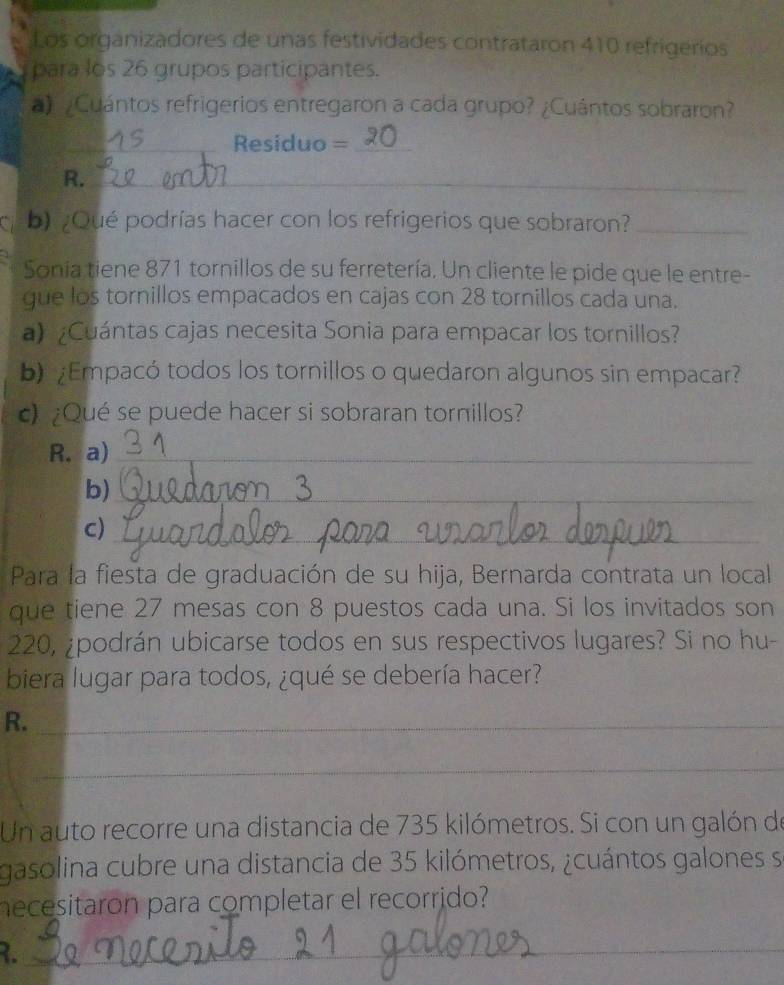 Los organizadores de unas festividades contrataron 410 refrigerios
para los 26 grupos participantes.
a) ¿Cuántos refrigerios entregaron a cada grupo? ¿Cuántos sobraron?
15 Residuo = 20
R. Se entr
b) ¿Qué podrías hacer con los refrigerios que sobraron?
Sonia tiene 871 tornillos de su ferretería. Un cliente le pide que le entre-
gue los tornillos empacados en cajas con 28 tornillos cada una.
a) ¿Cuántas cajas necesita Sonia para empacar los tornillos?
b) ¿Empacó todos los tornillos o quedaron algunos sin empacar?
c) ¿Qué se puede hacer si sobraran tornillos?
R. a) 31
b) Quedaron 3
c) Guardalos para usarlos despues
Para la fiesta de graduación de su hija, Bernarda contrata un local
que tiene 27 mesas con 8 puestos cada una. Si los invitados son
220, ¿podrán ubicarse todos en sus respectivos lugares? Si no hu-
biera lugar para todos, ¿qué se debería hacer?
R.
Un auto recorre una distancia de 735 kilómetros. Si con un galón de
gasolina cubre una distancia de 35 kilómetros, ¿cuántos galones s
necesitaron para completar el recorrido?
R. Se necesito 21 galones